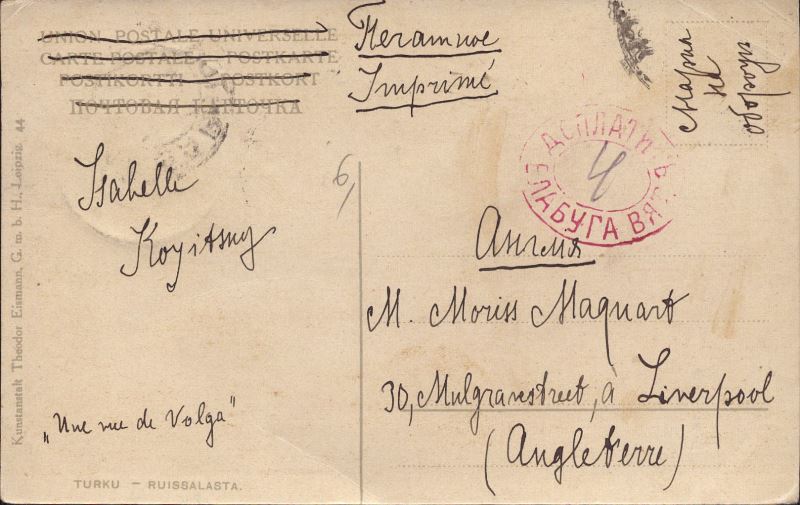 UNION POSTALE UNIVERSELLE
CARTE POSTALE — POSTKARTE
POSTIKORTTI — POSTKORT
ПОЧТОВАЯ КАРТОЧКА
Печатное
Imprimé
Марка
на
обороте
ДОПЛАТИТЬ
4
ЕЛАБУГА ВЯТ
Isabelle
Koyitsny
6,
Англия
M. Moriss Maquart
30, Mulgravestreet, à Liverpool
(Angleterre)
„Une vue de Volga"
TURKU — RUISSALASTA.
Kunstanstalt Theodor Eismann, G. m. b. H., Leipzig. 44